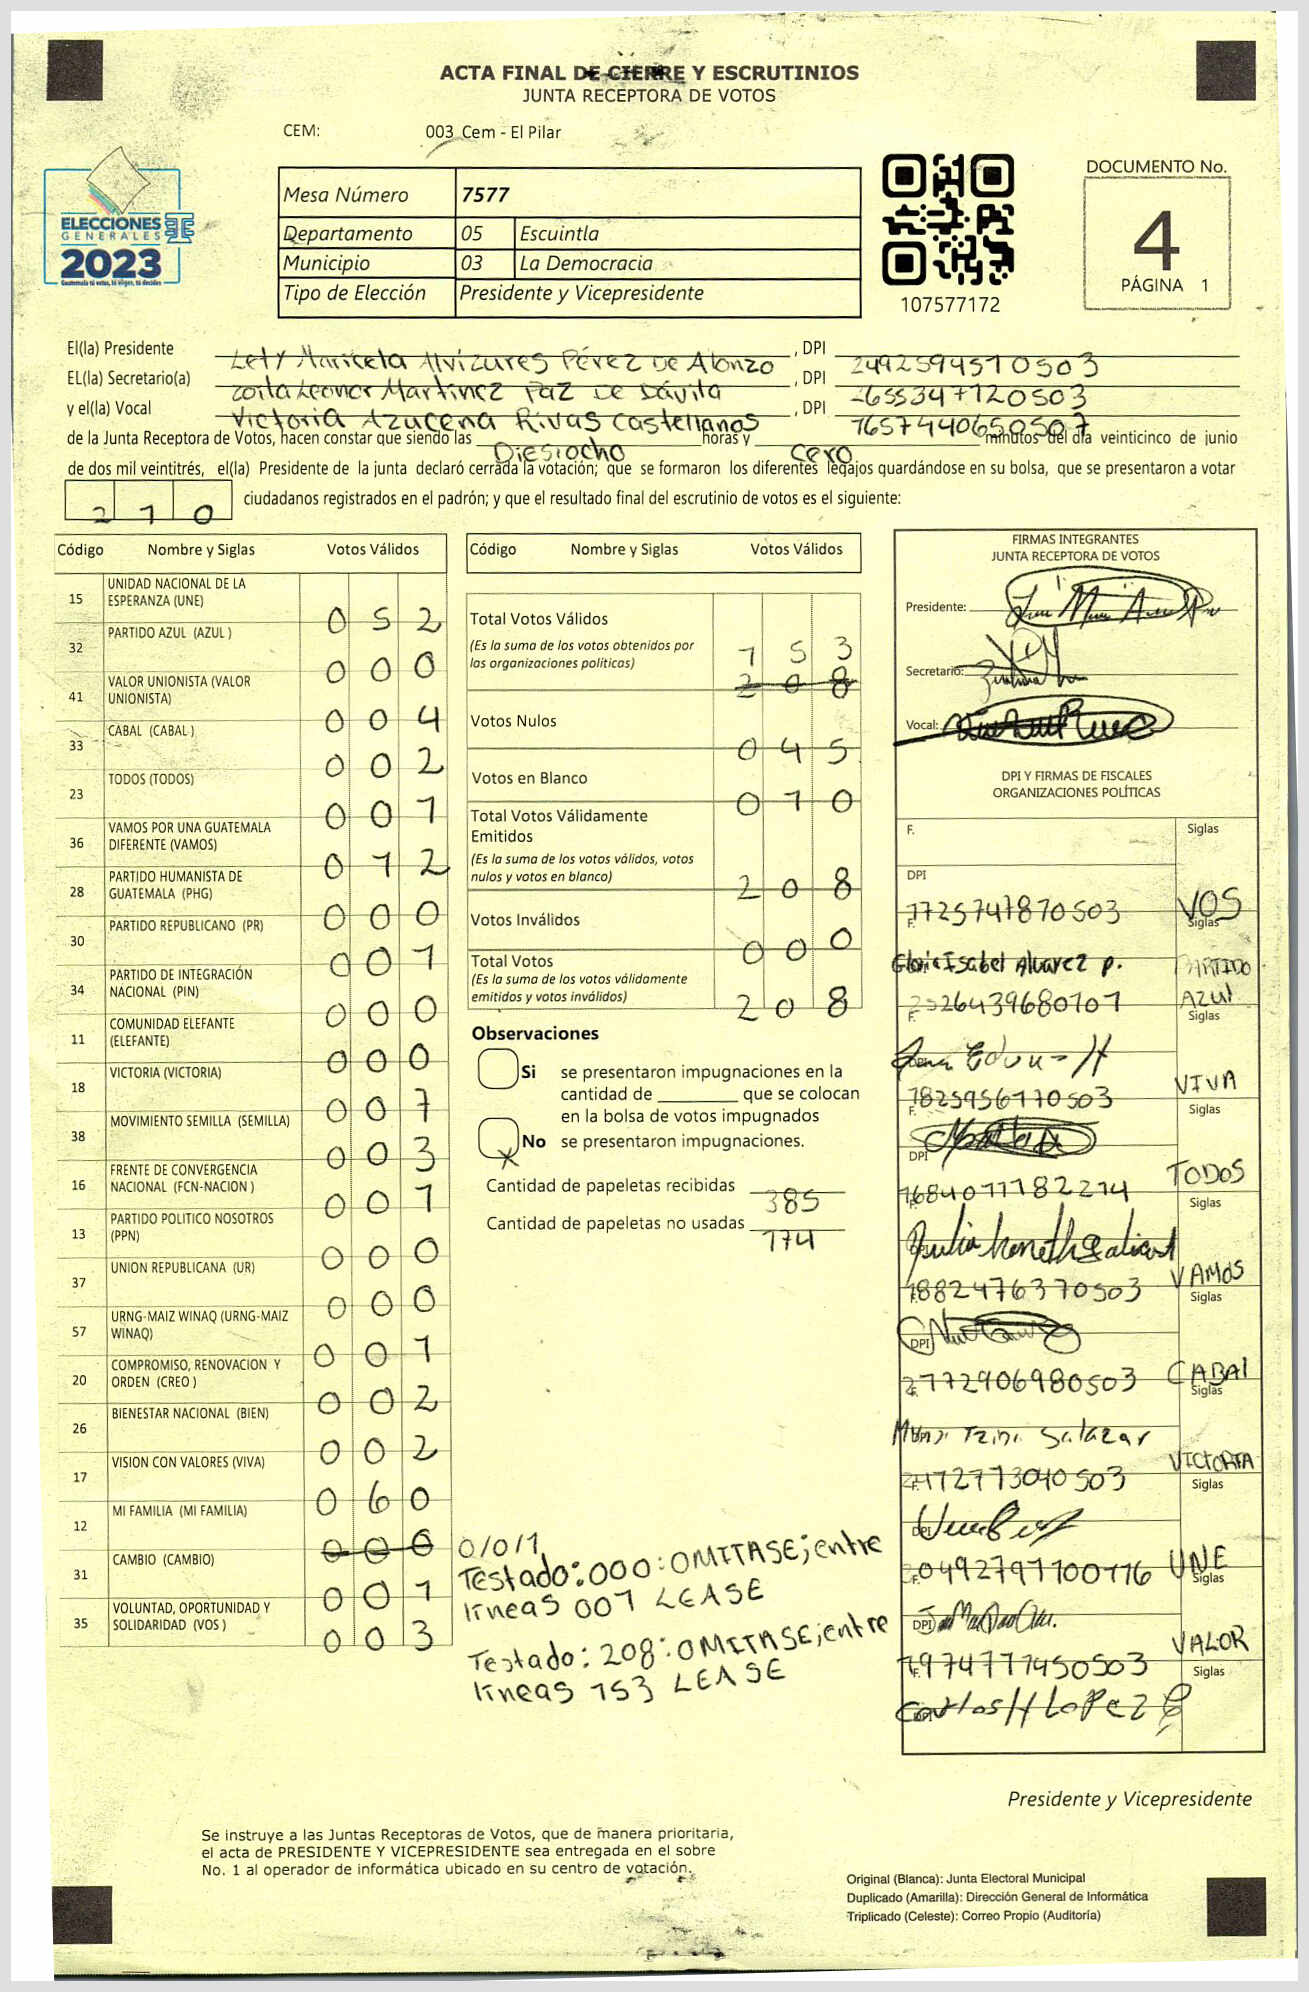 ACTA FINAL DE CIERRE Y ESCRUTINIOS
JUNTA RECEPTORA DE VOTOS
CEM: 003 Cem - El Pilar
ELECCIONES
GENERALES
2023
Guatemala tú votas, tú eliges, tú decides
Mesa Número 7577
Departamento 05 Escuintla
Municipio 03 La Democracia
Tipo de Elección Presidente y Vicepresidente
107577172
DOCUMENTO No.
4
PÁGINA 1
El(la) Presidente Lety Maricela Alvizures Pérez De Alonzo , DPI 2492594510503
EL(la) Secretario(a) Zoila Leonor Martinez Paz De Dávila , DPI 2655347120503
y el(la) Vocal Victoria Azucena Rivas Castellanos , DPI 1657440650507
de la Junta Receptora de Votos, hacen constar que siendo las Diesiocho horas y Cero minutos del día veinticinco de junio
de dos mil veintitrés, el(la) Presidente de la junta declaró cerrada la votación; que se formaron los diferentes legajos guardándose en su bolsa, que se presentaron a votar
210 ciudadanos registrados en el padrón; y que el resultado final del escrutinio de votos es el siguiente:
Código Nombre y Siglas Votos Válidos
15 UNIDAD NACIONAL DE LA ESPERANZA (UNE) 052
32 PARTIDO AZUL (AZUL ) 000
41 VALOR UNIONISTA (VALOR UNIONISTA) 004
33 CABAL (CABAL ) 002
23 TODOS (TODOS) 001
36 VAMOS POR UNA GUATEMALA DIFERENTE (VAMOS) 012
28 PARTIDO HUMANISTA DE GUATEMALA (PHG) 000
30 PARTIDO REPUBLICANO (PR) 001
34 PARTIDO DE INTEGRACIÓN NACIONAL (PIN) 000
11 COMUNIDAD ELEFANTE (ELEFANTE) 000
18 VICTORIA (VICTORIA) 007
38 MOVIMIENTO SEMILLA (SEMILLA) 003
16 FRENTE DE CONVERGENCIA NACIONAL (FCN-NACION ) 001
13 PARTIDO POLITICO NOSOTROS (PPN) 000
37 UNION REPUBLICANA (UR) 000
57 URNG-MAIZ WINAQ (URNG-MAIZ WINAQ) 001
20 COMPROMISO, RENOVACION Y ORDEN (CREO ) 002
26 BIENESTAR NACIONAL (BIEN) 002
17 VISION CON VALORES (VIVA) 060
12 MI FAMILIA (MI FAMILIA) 000 0/0/1
31 CAMBIO (CAMBIO) 001
35 VOLUNTAD, OPORTUNIDAD Y SOLIDARIDAD (VOS ) 003
Código Nombre y Siglas Votos Válidos
Total Votos Válidos
(Es la suma de los votos obtenidos por
las organizaciones políticas)
153
208
Votos Nulos 045
Votos en Blanco 010
Total Votos Válidamente
Emitidos
(Es la suma de los votos válidos, votos
nulos y votos en blanco)
208
Votos Inválidos 000
Total Votos
(Es la suma de los votos válidamente
emitidos y votos inválidos)
208
Observaciones
Si se presentaron impugnaciones en la
cantidad de ________ que se colocan
en la bolsa de votos impugnados
X No se presentaron impugnaciones.
Cantidad de papeletas recibidas 385
Cantidad de papeletas no usadas 174
Testado: 000: OMITASE; entre
lineas 001 LEASE
Testado: 208: OMITASE; entre
lineas 153 LEASE
FIRMAS INTEGRANTES
JUNTA RECEPTORA DE VOTOS
Presidente:
Secretario:
Vocal:
DPI Y FIRMAS DE FISCALES
ORGANIZACIONES POLÍTICAS
F. Siglas
DPI
1725747870503 VOS
F. Siglas
Isabel Alvarez P. PARTIDO
2526439680101 AZUl
F. Siglas
1825956170503 VIVA
F. Siglas
DPI
1684011182214 TODOS
Siglas
1882476370503 VAMOS
Siglas
DPI
2772906980503 CABAl
Siglas
Salazar
2472773040503 VICTORIA
Siglas
DPI
UNE
Siglas
DPI
1974777450503 VALOR
Siglas
Carlos H LoPez
DPI
Presidente y Vicepresidente
Se instruye a las Juntas Receptoras de Votos, que de manera prioritaria,
el acta de PRESIDENTE Y VICEPRESIDENTE sea entregada en el sobre
No. 1 al operador de informática ubicado en su centro de votación.
Original (Blanca): Junta Electoral Municipal
Duplicado (Amarilla): Dirección General de Informática
Triplicado (Celeste): Correo Propio (Auditoría)